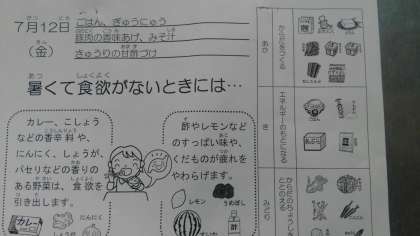 7月12日
(金)
ごはん、ぎゅうにゅう
豚肉の香味あげ、みそ汁
きゅうりの甘酢づけ
暑くて食欲がないときには…
カレー、こしょう
などの香辛料や、
にんにく、しょうが、
パセリなどの香りの
ある野菜は、食欲を
引き出します。
酢やレモンなど
のすっぱい味や、
くだものが疲れを
やわらげます。
カレー
にんにく
レモン
うめぼし
酢
あか
からだをつくる
き
エネルギーのもとになる
みどり
からだのちょうしを
ととのえる